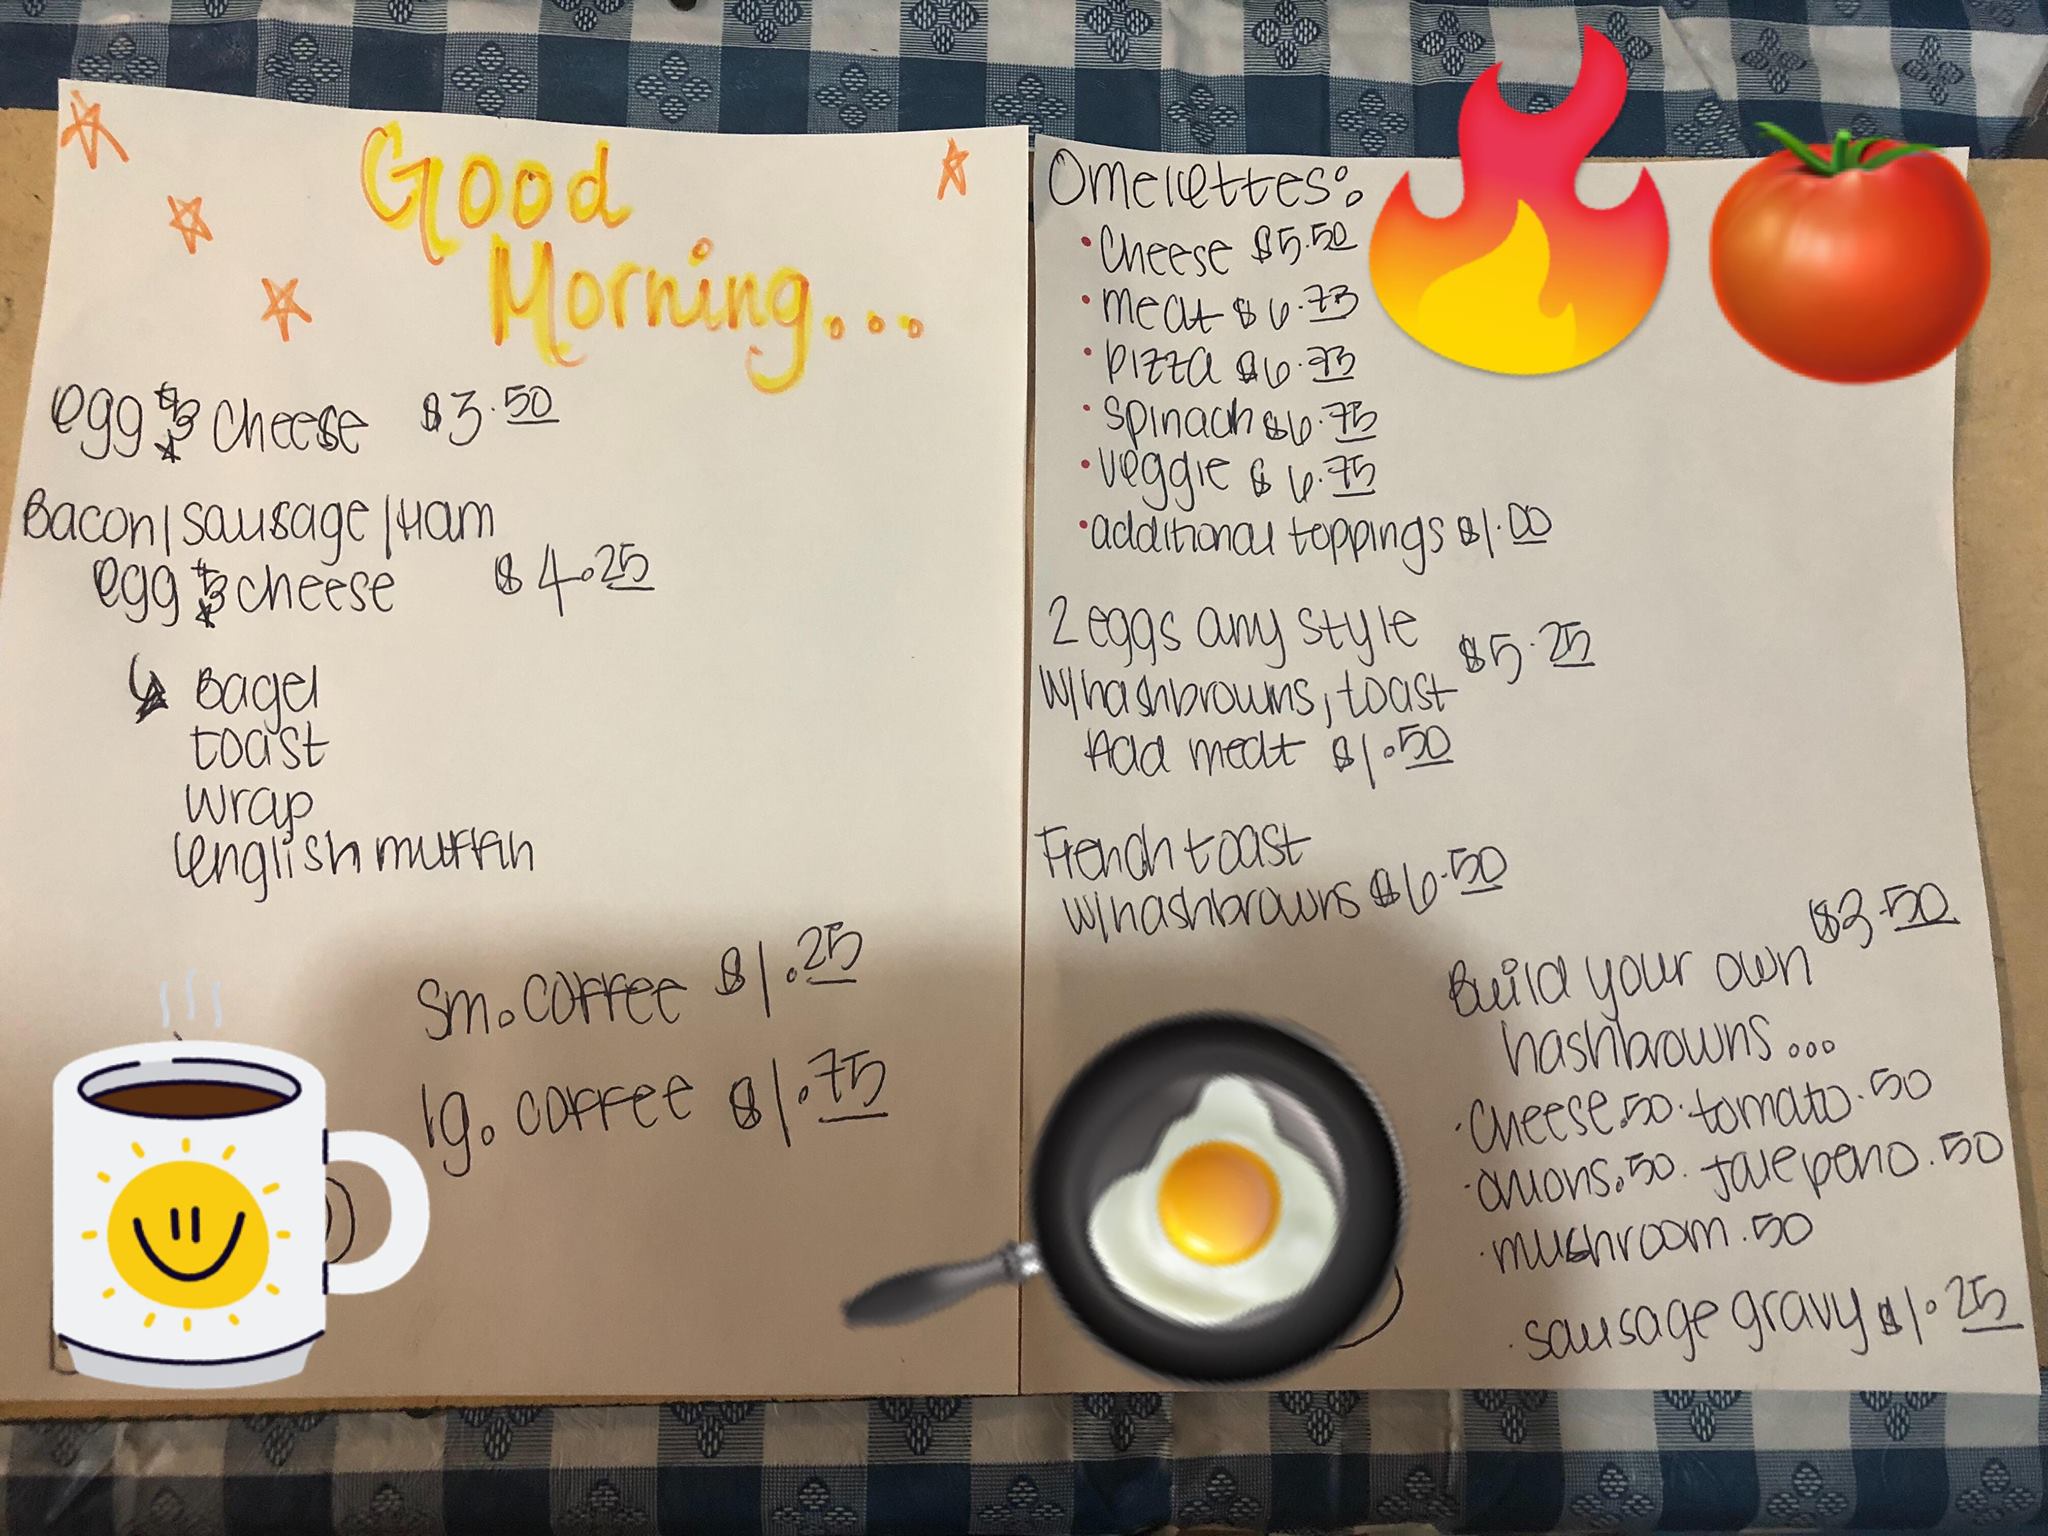 Good
Morning...
egg & cheese $3.50
Bacon/sausage/Ham
egg & cheese $4.25
↳ Bagel
toast
wrap
english muffin
sm. coffee $1.25
lg. coffee $1.75
Omelettes:
• Cheese $5.50
• meat $6.75
• pizza $6.75
• spinach $6.75
• veggie $6.75
• additional toppings $1.00
2 eggs any style
w/hashbrowns, toast $5.25
Add meat $1.50
French toast
w/hashbrowns $6.50
Build your own $3.50
hashbrowns...
· Cheese .50 · tomato .50
· onions .50 · jalepeno .50
· mushroom .50
· sausage gravy $1.25